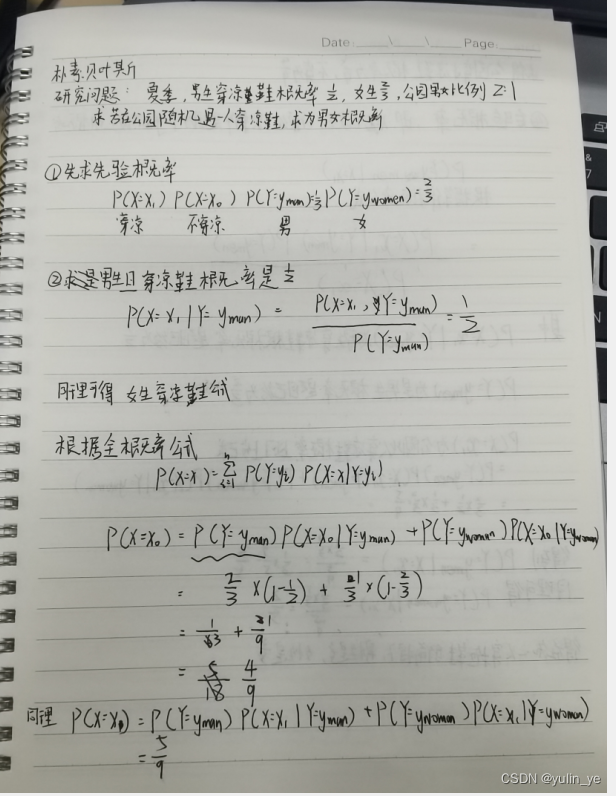 Date: \ \ Page:
朴素贝叶斯
研究问题: 夏季, 男生穿凉鞋概率 1/2, 女生 2/3, 公园男女比例 2:1
求若在公园随机遇一人穿凉鞋, 求为男女概率
①先求先验概率
P(X=x₁) P(X=x₀) P(Y=yman)=1/3 P(Y=ywomen)=2/3
穿凉 不穿凉 男 女
②求是男生且穿凉鞋概率是 1/2
P(X=x₁|Y=yman) = P(X=x₁, Y=yman) / P(Y=yman) = 1/2
同理可得 女生穿凉鞋公式
根据全概率公式
P(X=x)=∑ⁿᵢ₌₁ P(Y=yᵢ) P(X=x|Y=yᵢ)
P(X=x₀) = P(Y=yman) P(X=x₀|Y=yman) + P(Y=ywoman) P(X=x₀|Y=ywoman)
= 2/3 ×(1-1/2) + 1/3 ×(1-2/3)
= 1/3 + 1/9
= 5/18 4/9
同理 P(X=x₁) = P(Y=yman) P(X=x₁|Y=yman) + P(Y=ywoman) P(X=x₁|Y=ywoman)
= 5/9
CSDN @yulin_ye